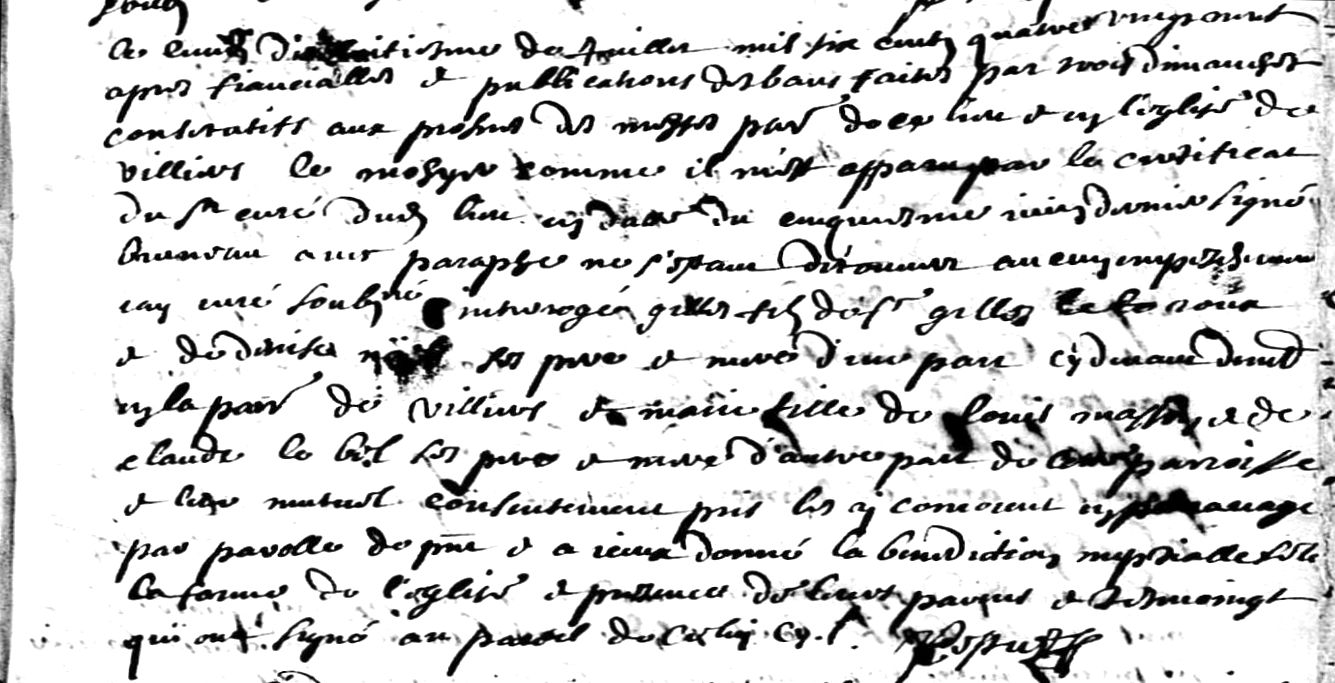 ce lundi dixhuitiesme de Juillet mil six cents quatrevingt neuf
apres fiancialles e publications des bans faites par trois dimanches
consecutifs aux prosnes des messes par de ce lieu e en l'eglise de
villiers le comme il m'est apparu par le certificat
du Sr curé dud lieu en datte du cinquiesme signé
bruneau avec paraphe ne s'estant decouvert aucun empeschement
iay curé soubsné interogé gilles fils de Sr gilles roux
e de denise ses pere e mere d'une part cy devant demt
en la par de villiers e marie fille de louis e de
claude le bel ses pere e mere d'autre part de parroisse
e leur mutuel consentement pris les ay conioint en mariage
par parolle de pnt e a iceux donné la benediction nuptialle selon
la forme de l'eglise e presence de leurs parens e tesmoings
qui ont signé au pareil de cestuy cy